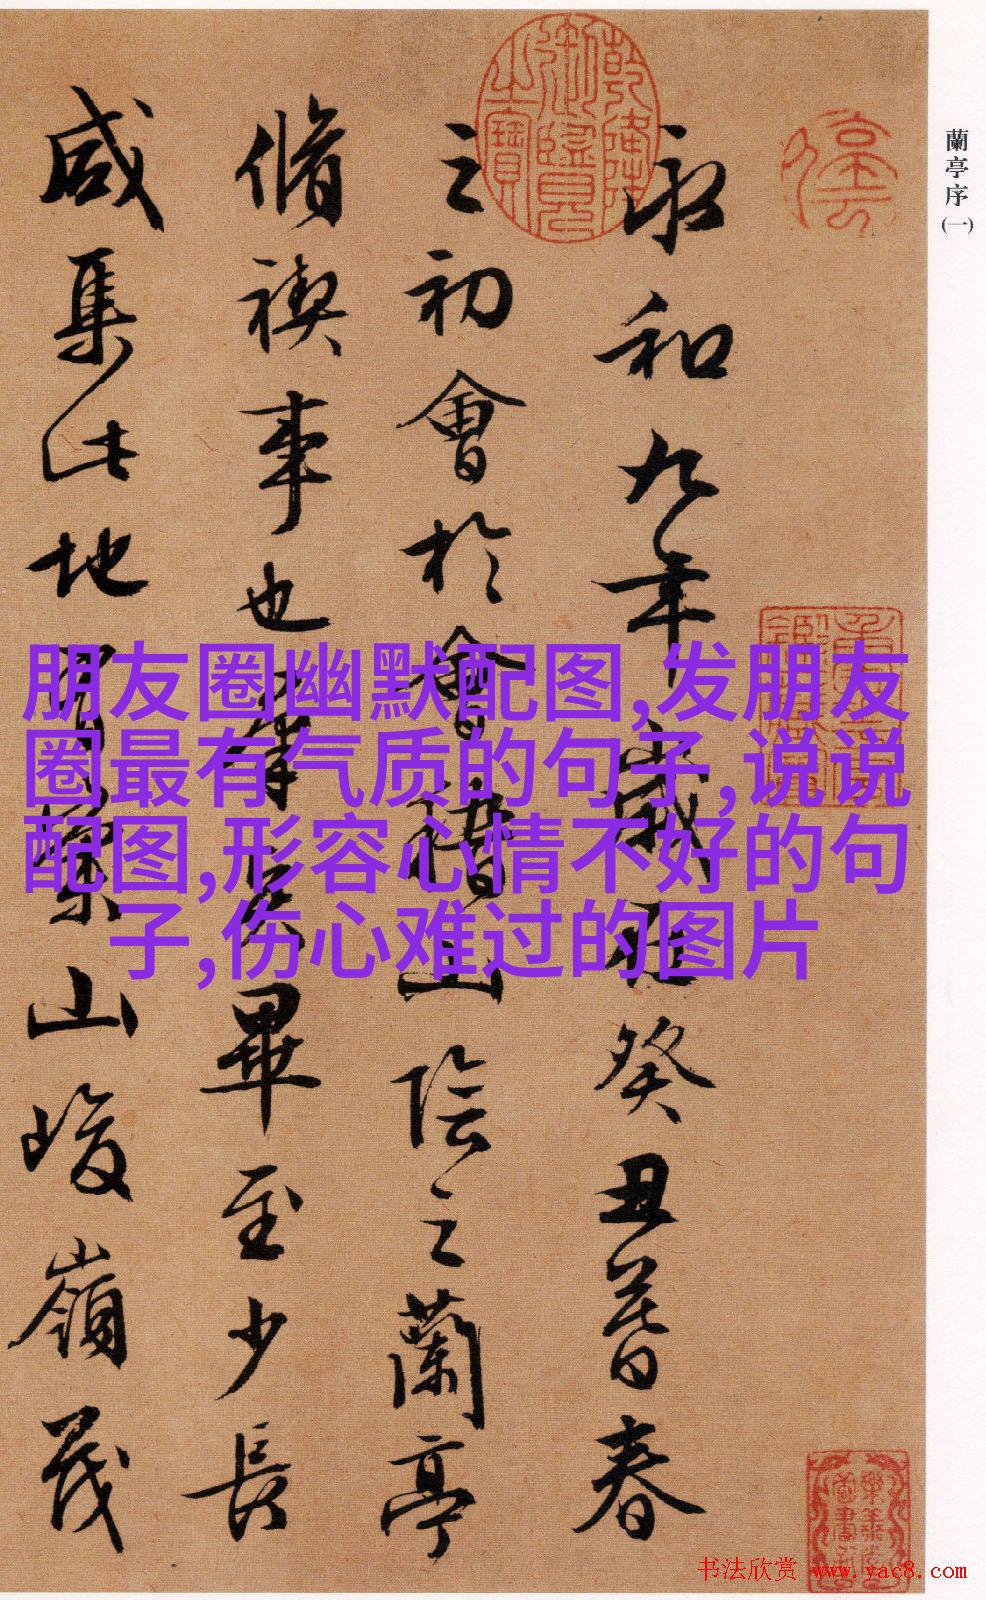 蘭亭序
(一)
永和九年歲在癸丑暮春
之初會於會稽山陰之蘭亭
脩禊事也羣賢畢至少長
咸集此地有崇山峻領茂
乾隆御覽之寶
朋友圈幽默配图,发朋友
圈最有气质的句子,说说
配图,形容心情不好的句
子,伤心难过的图片
书法欣赏 www.yac8.com